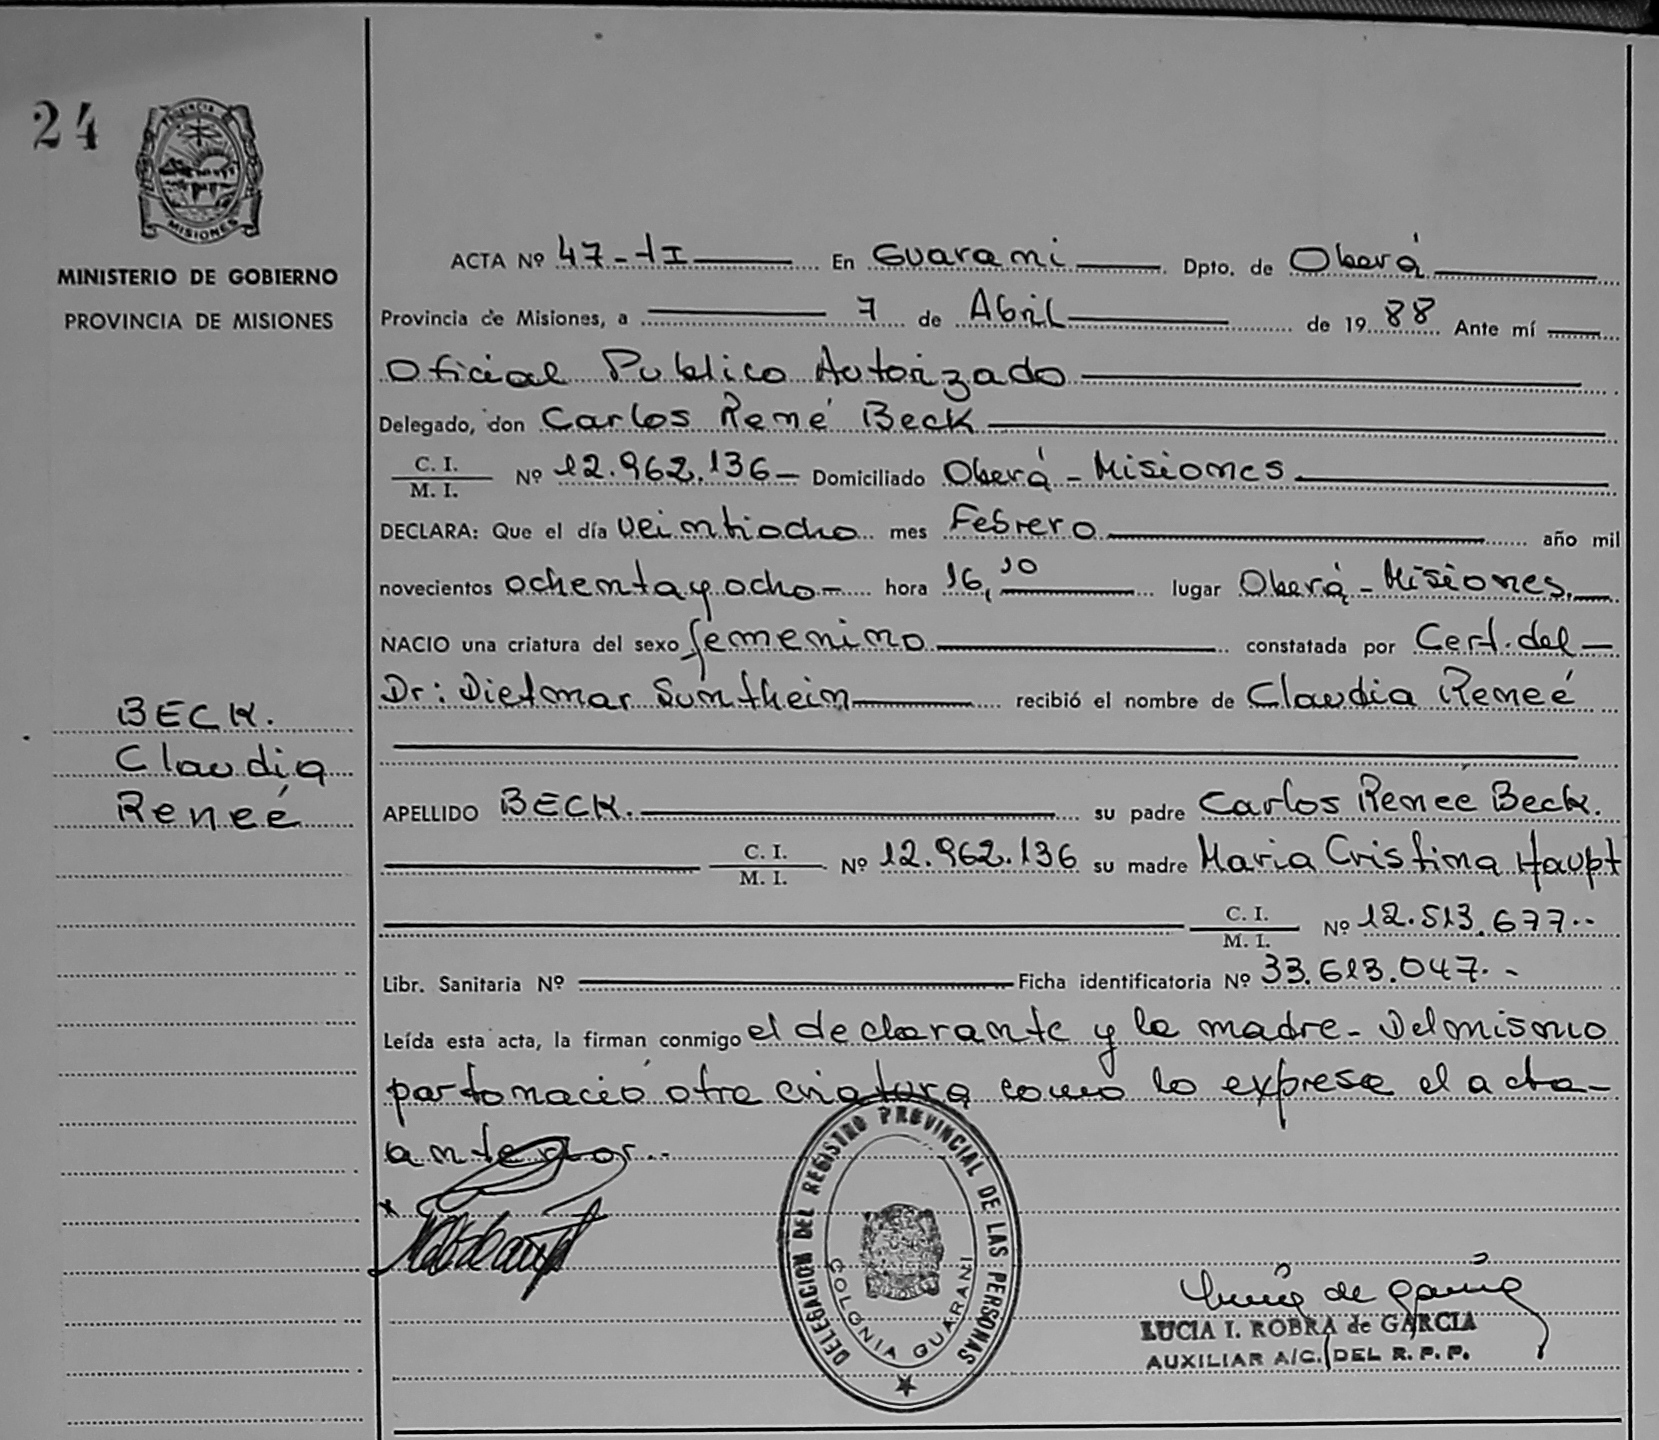 24
PROVINCIA
MISIONES
MINISTERIO DE GOBIERNO
PROVINCIA DE MISIONES
BECK.
Claudia
Reneé
ACTA Nº 47-tI En Guarami Dpto. de Oberá
Provincia de Misiones, a 7 de Abril de 1988 Ante mí
Oficial Publico Autorizado
Delegado, don Carlos René Beck
C. I. / M. I. Nº 12.962.136- Domiciliado Oberá - Misiones
DECLARA: Que el día veintiocho mes Febrero año mil
novecientos ochenta y ocho- hora 16,10 lugar Oberá - Misiones.
NACIO una criatura del sexo femenino constatada por Cert. del
Dr: Dietmar Suntheim recibió el nombre de Claudia Reneé
APELLIDO BECK. su padre Carlos Renee Beck.
C. I. / M. I. Nº 12.962.136 su madre Maria Cristina Haupt
C. I. / M. I. Nº 12.513.677..
Libr. Sanitaria Nº Ficha identificatoria Nº 33.613.047.-
Leída esta acta, la firman conmigo el declarante y la madre- Del mismo
parto nació otra criatura como lo expresa el acta-
anterior..
DELEGACION DEL REGISTRO PROVINCIAL DE LAS PERSONAS
COLONIA GUARANI
Lucia de Garcia
LUCIA I. ROBRA de GARCIA
AUXILIAR A/C. DEL R. P. P.